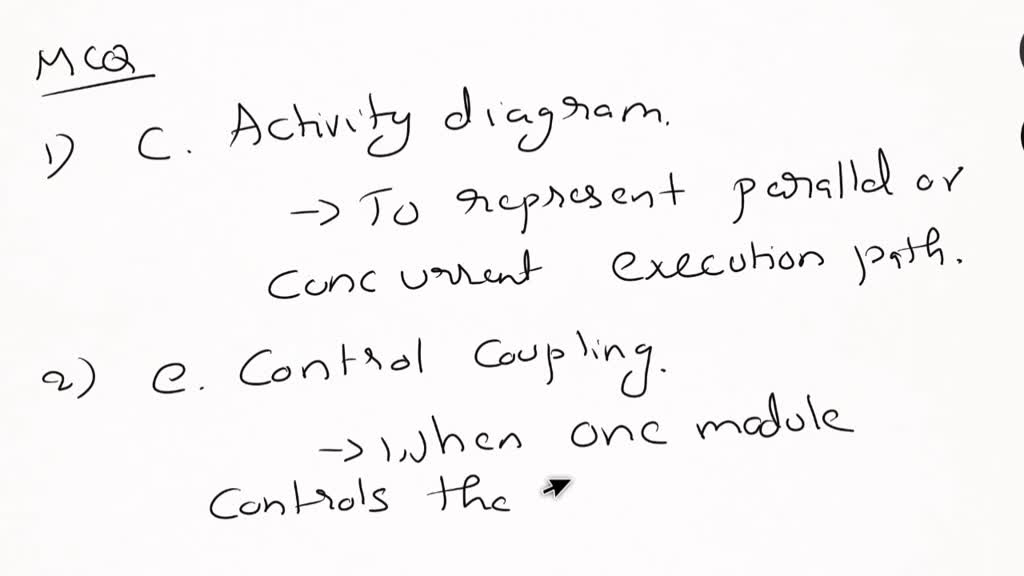 MCQ
1) C. Activity diagram.
→ To represent parallel or
concurrent execution path.
2) e. Control Coupling.
→ When one module
Controls the